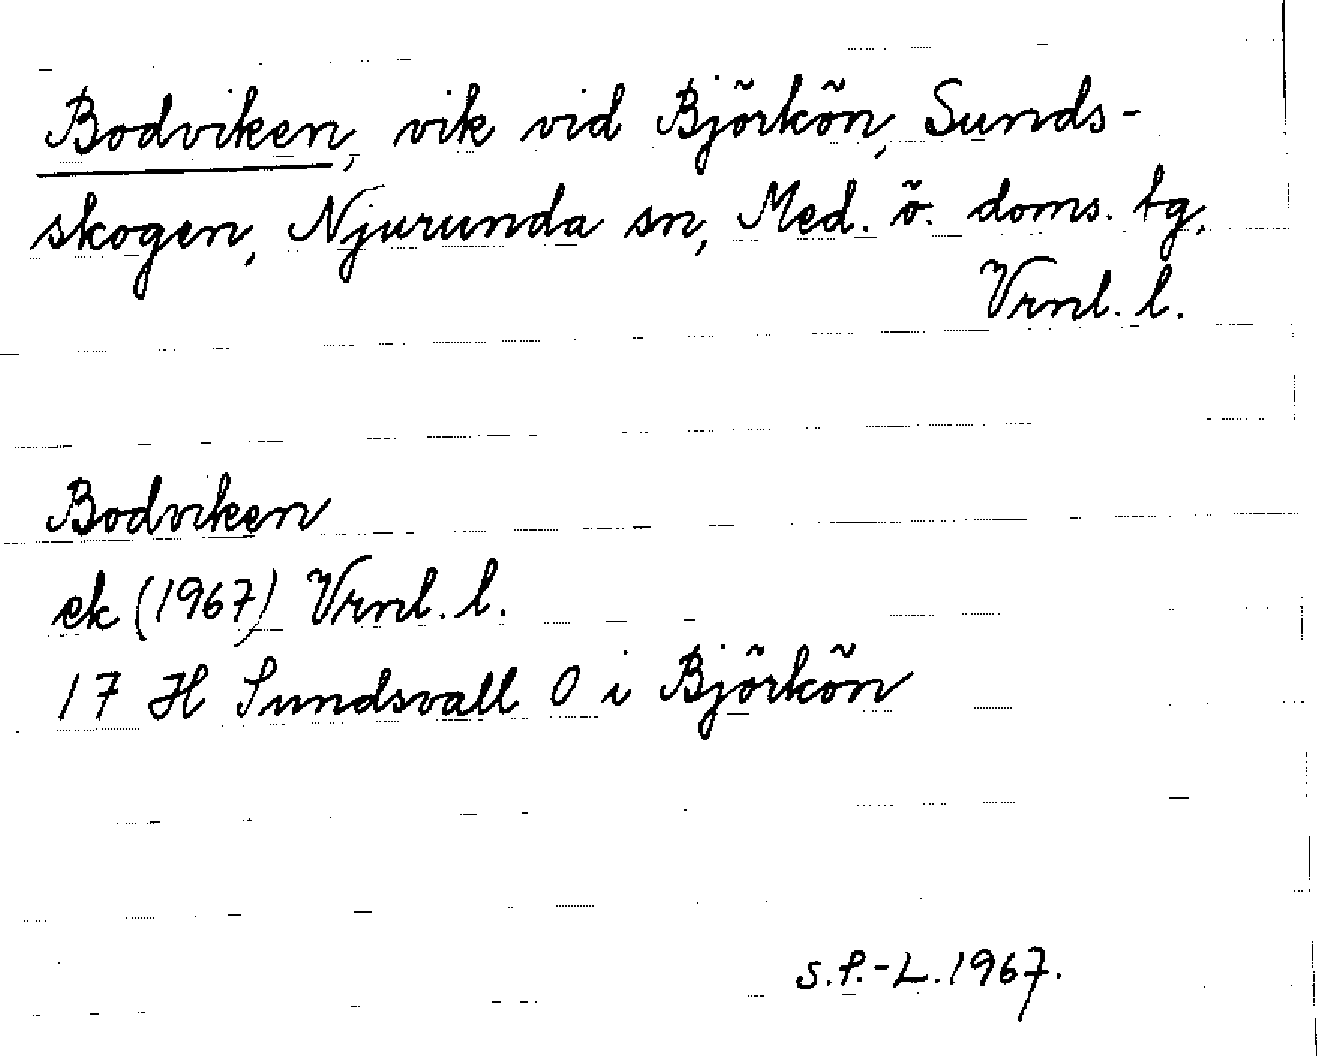 Bodviken, vik vid Björkön, Sunds-
skogen, Njurunda sn, Med. ö. doms. tg,
Vrnl. l.
Bodviken
ek (1967) Vrnl. l.
17 H Sundsvall O i Björkön
S.P.-L. 1967.